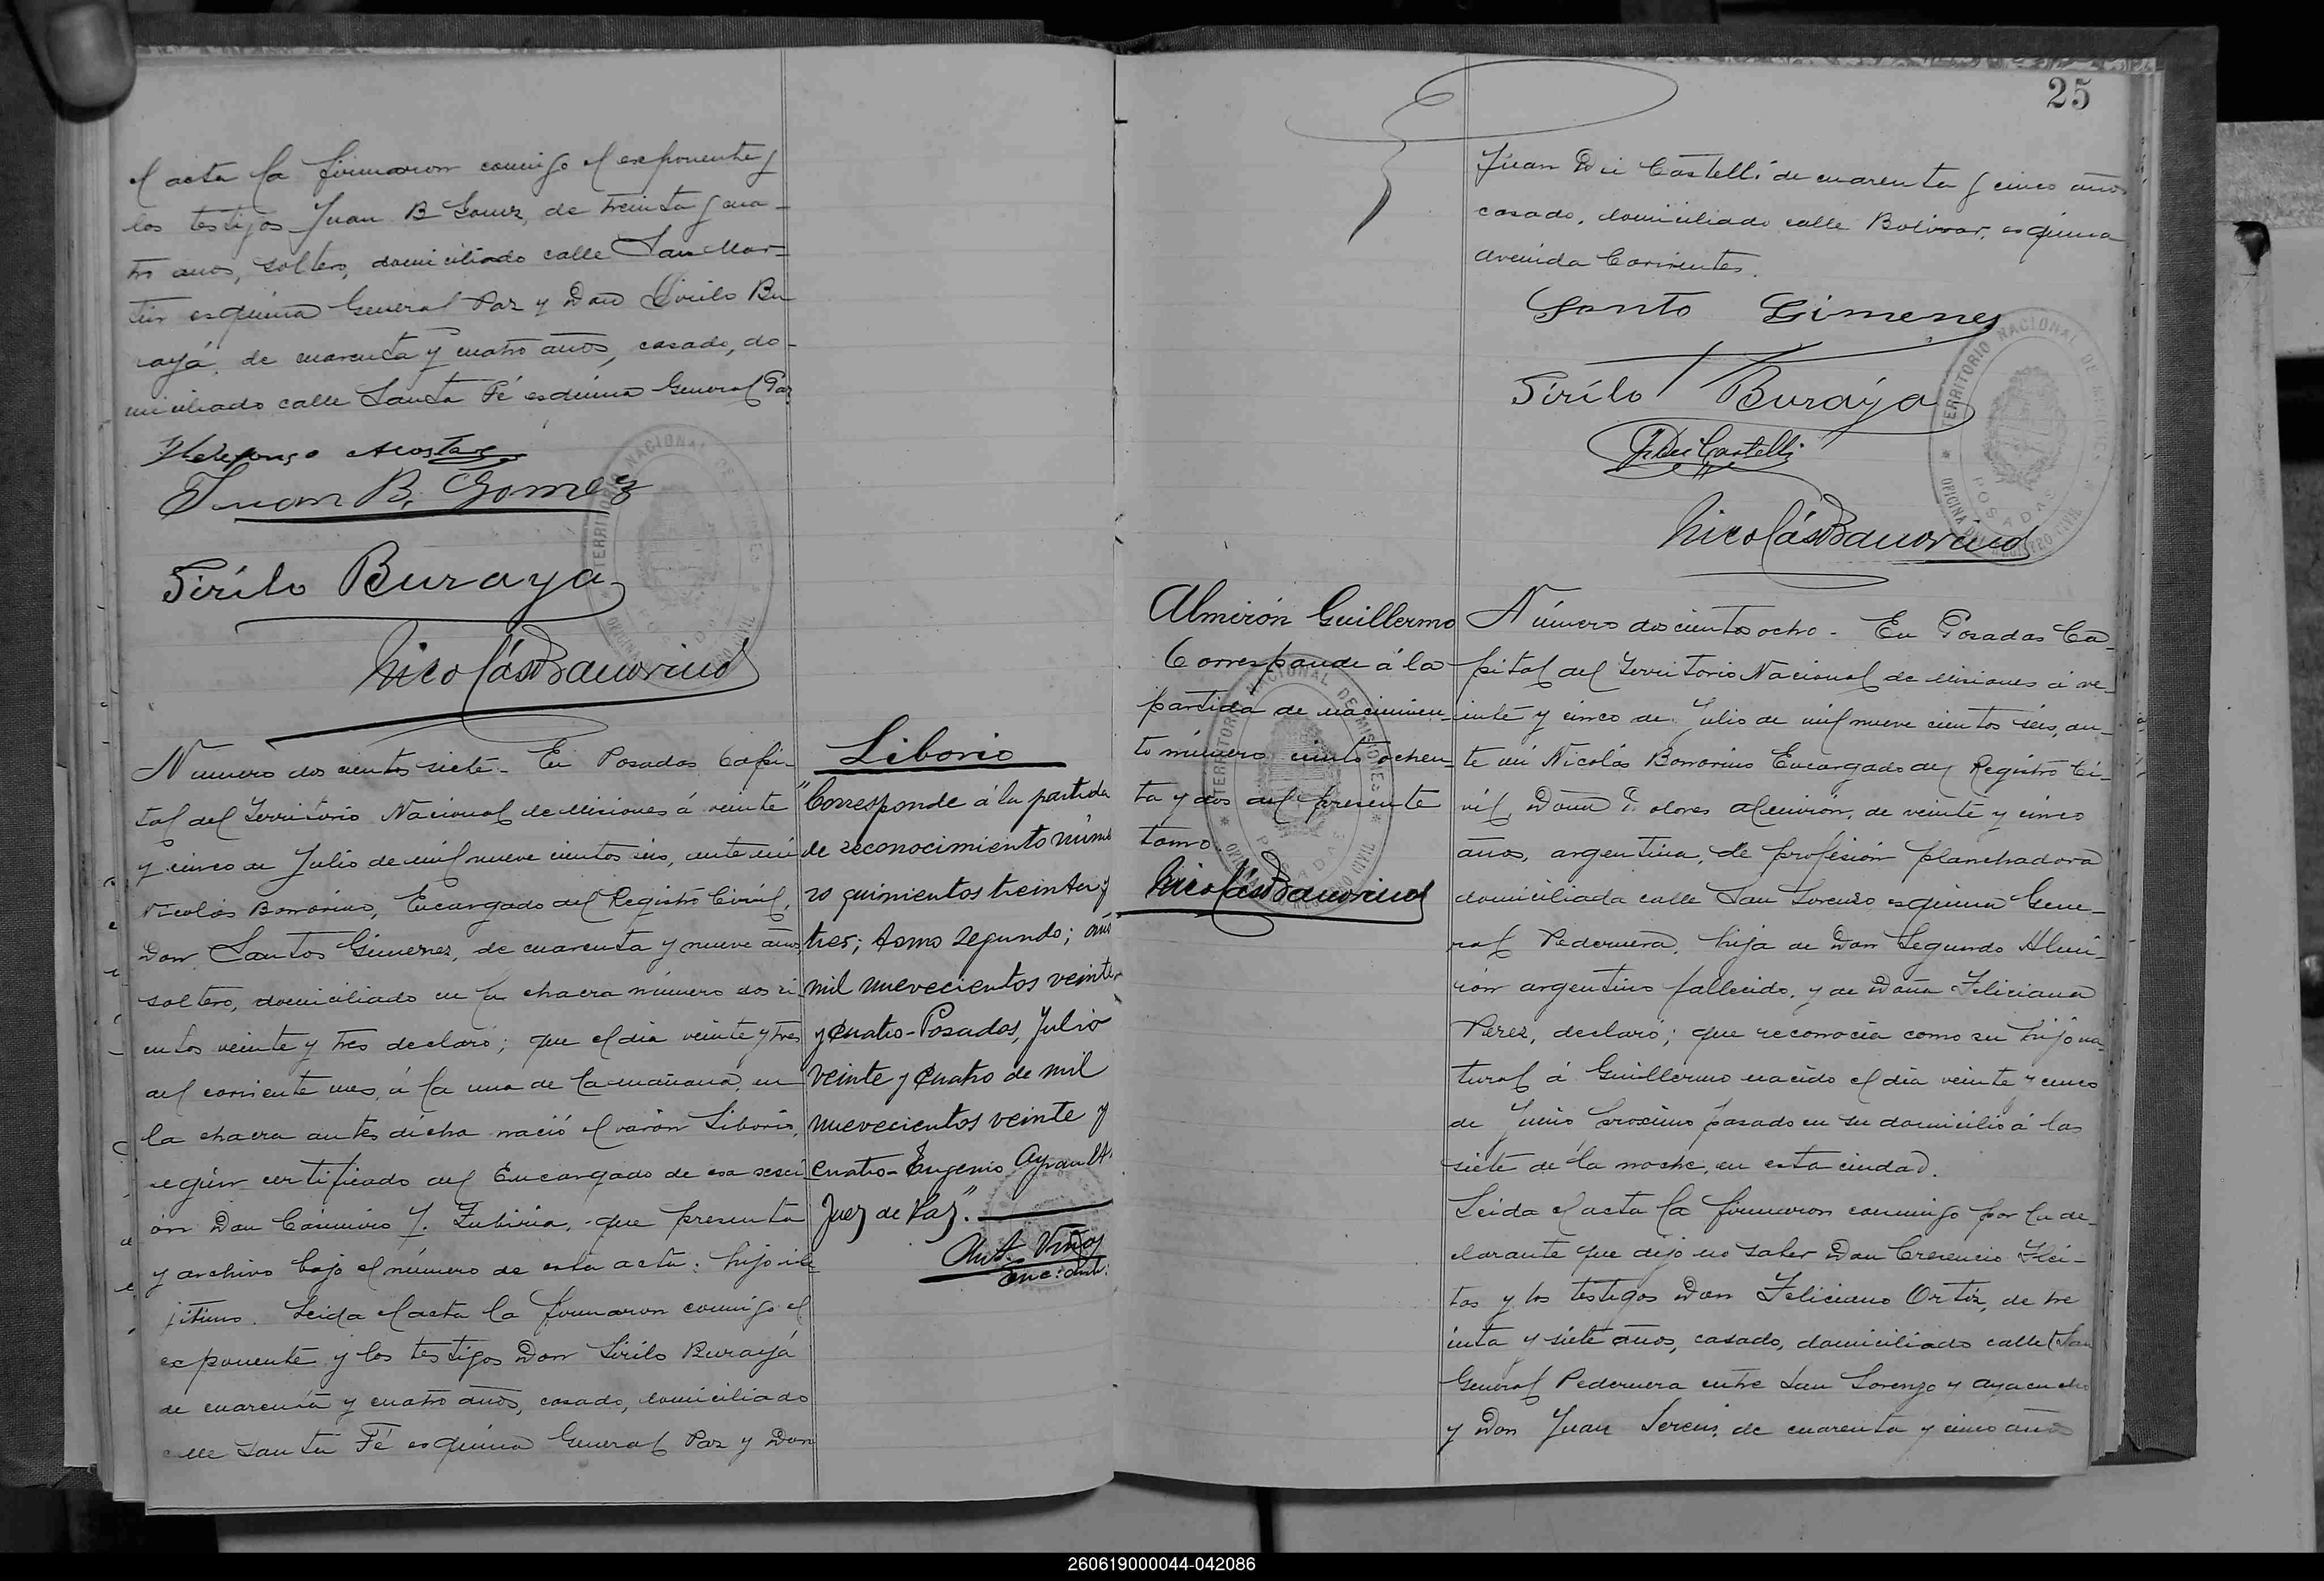 el acta la firmaron conmigo el exponente y
los testigos Juan B Gomez, de treinta y cua-
tro anos, soltero, domiciliado calle San Mar-
tin esquina General Paz y Don Sirilo Bu
rayá, de cuarenta y cuatro años, casado, do-
miciliado calle Santa Fé esquina General Paz
Ildefonso Acosta
Juan B. Gomez
Sirilo Buraya
Nicolás Bonorino
TERRITORIO NACIONAL DE MISIONES
Número dos cientos siete. En Posadas Capi-
tal del Territorio Nacional de Misiones á veinte
y cinco de Julio de mil nueve cientos seis, ante mi
Nicolás Bonorino, Encargado del Registro Civil,
Don Santos Gimenez, de cuarenta y nueve años,
soltero, domiciliado en la chacra número dos ci-
entos veinte y tres declaró; que el dia veinte y tres
del corriente mes, á la una de la mañana, en
la chacra antes dicha nació el varón Liborio,
según certificado del Encargado de esa secci
ón Don Casimiro Y. Zubiria, que presenta
y archivo bajo el número de esta acta: hijo ile
jitimo. Leida el acta la firmaron conmigo el
exponente y los testigos Don Sirilo Burayá
de cuarenta y cuatro años, casado, domiciliado
calle Santa Fé esquina General Paz y Don
Liborio
"Corresponde á la partida
de reconocimiento núme
ro quinientos treinta y
tres; tomo segundo; año
mil nuevecientos veinte
y cuatro - Posadas, Julio
veinte y cuatro de mil
nuevecientos veinte y
cuatro - Eugenio Ayrault
Juez de Paz."
25
Juan Dei Castelli de cuarenta y cinco años
casado, domiciliado calle Bolivar, esquina
avenida Corrientes.
Santo Gimenes
Sirílo Buráya
J. Dei Castelli
Nicolás Bonorino
TERRITORIO NACIONAL DE MISIONES
OFICINA DEL REGISTRO CIVIL
POSADAS
Almirón Guillermo
Corresponde á la
partida de nacimien-
to número ciento ochen-
ta y dos del presente
tomo.
Nicolás Bonorino
TERRITORIO NACIONAL DE MISIONES
POSADAS
Número doscientos ocho - En Posadas Ca-
pital del Territorio Nacional de Misiones á ve-
inte y cinco de Julio de mil nueve cientos seis, an-
te mi Nicolás Bonorino Encargado del Registro Ci-
vil, Doña Dolores Almirón, de veinte y cinco
años, argentina, de profesión planchadora
domiciliada calle San Lorenzo esquina Gene-
ral Pedernera, hija de Don Segundo Almi-
rón argentino fallecido, y de Doña Feliciana
Perez, declaró; que reconocia como su hijo na-
tural á Guillermo nacido el dia veinte y cinco
de Junio proximo pasado en su domicilio á las
siete de la noche, en esta ciudad.
Leida el acta la firmaron conmigo por la de-
clarante que dijo no saber Don Crecencio Flei-
tas y los testigos Don Feliciano Ortiz, de tre
inta y siete años, casado, domiciliado calle (San
General Pedernera entre San Lorenzo y Ayacucho
y Don Juan de cuarenta y cinco años
260619000044-042086